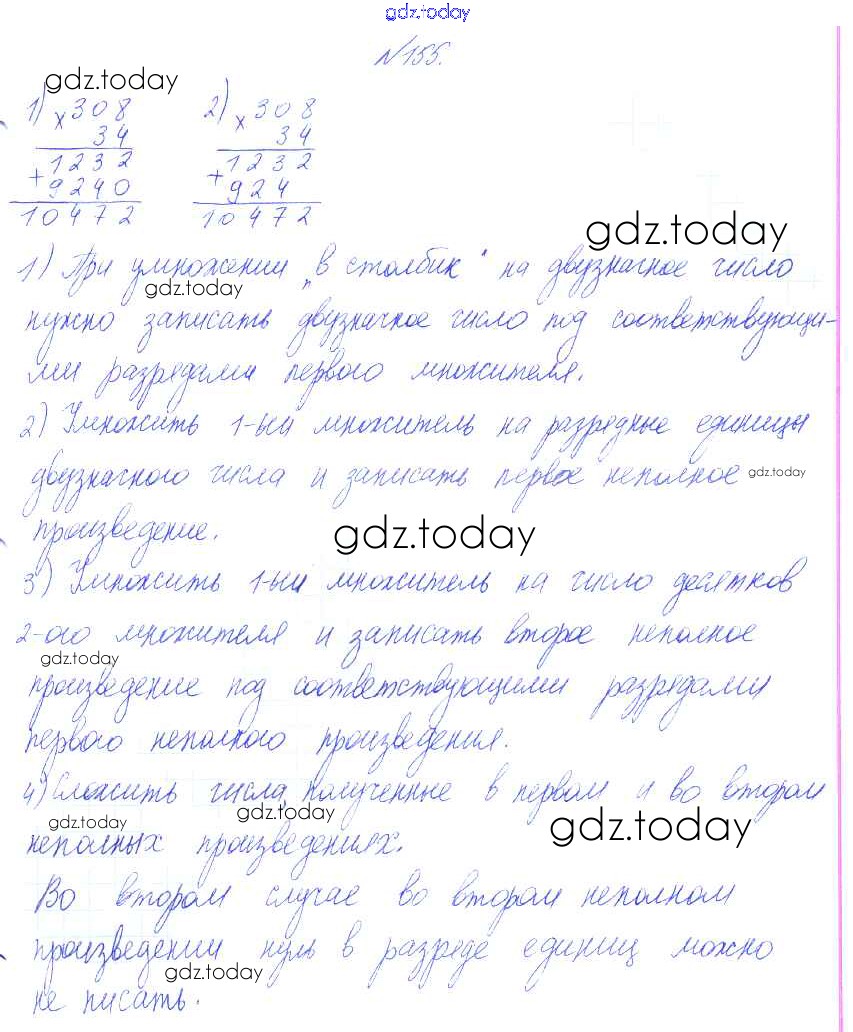 gdz.today
№155.
gdz.today
1) × 308 2) × 308
34 34
1232 1232
+ 9240 + 924
10472 10472
gdz.today
1) При умножении „в столбик" на двузначное число
gdz.today
нужно записать двузначное число под соответствующи-
ми разрядами первого множителя.
2) Умножить 1-ый множитель на разрядные единицы
двузначного числа и записать первое неполное
gdz.today
произведение.
gdz.today
3) Умножить 1-ый множитель на число десятков
2-ого множителя и записать второе неполное
gdz.today
произведение под соответствующими разрядами
первого неполного произведения.
4) Сложить числа, полученные в первом и во втором
gdz.today
gdz.today
gdz.today
неполных произведениях.
Во втором случае во втором неполном
произведении нуль в разряде единиц можно
gdz.today
не писать.